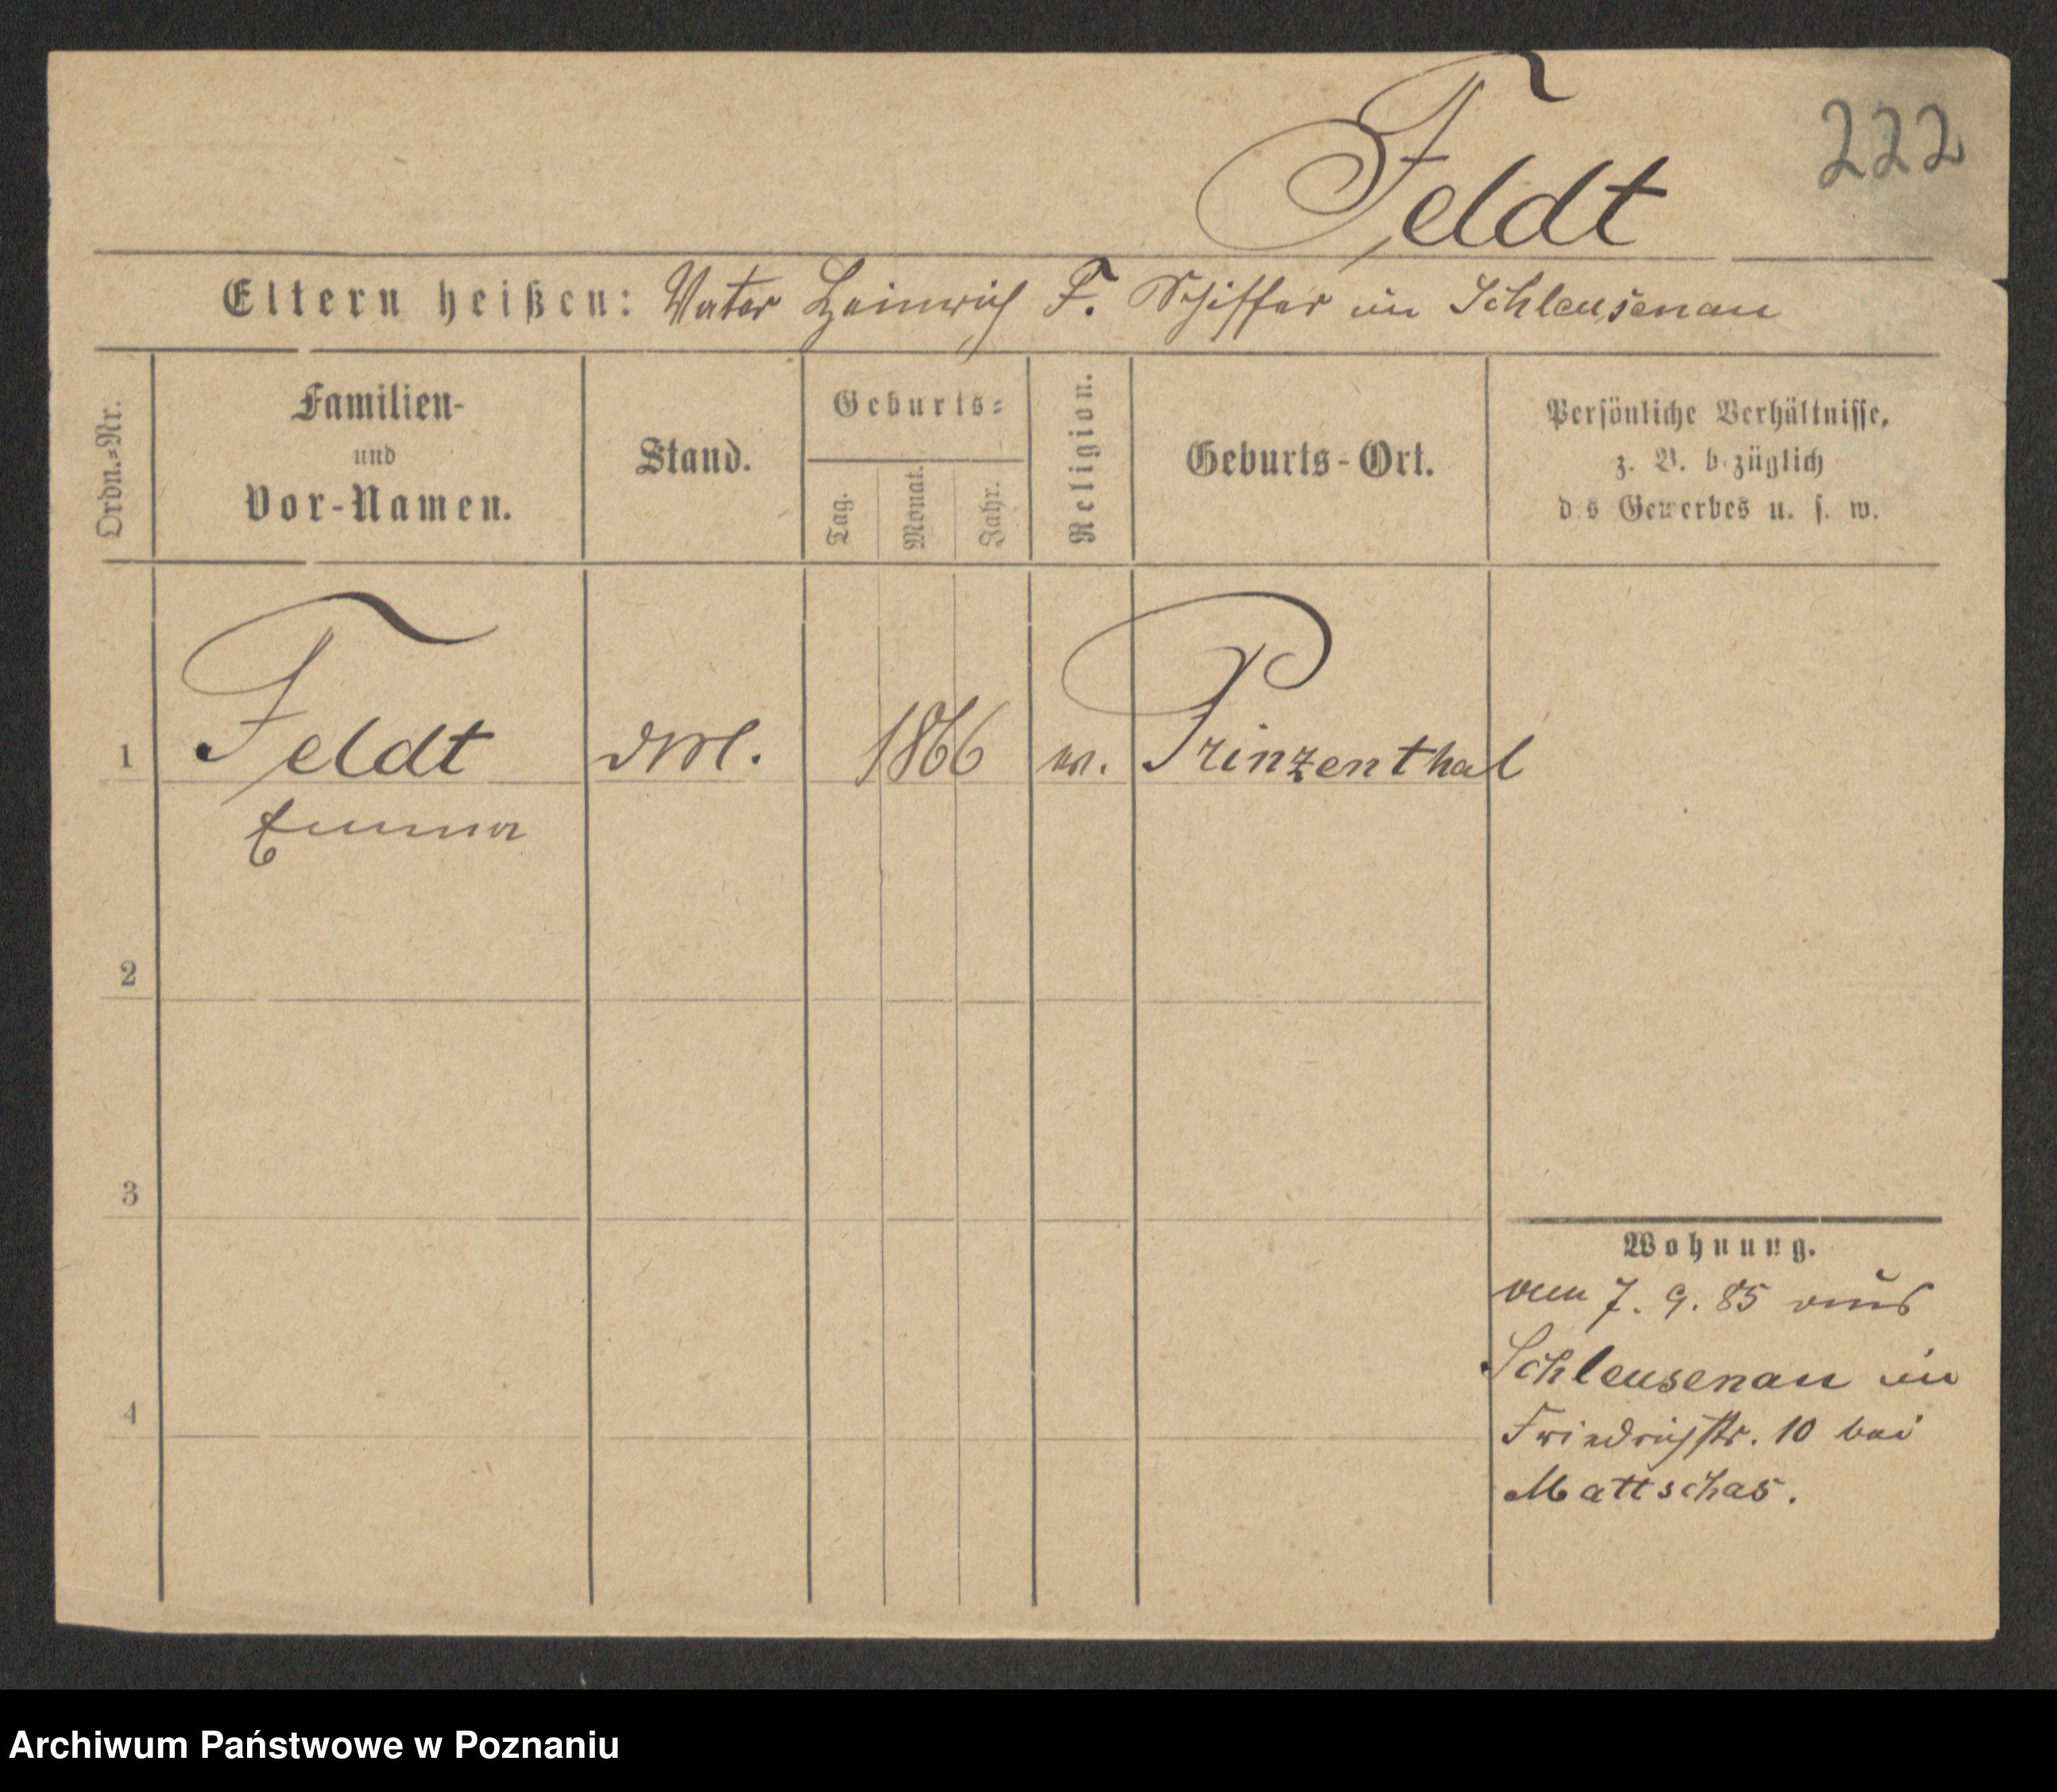 Feldt
222
Eltern heißen: Vater Heinrich F. Schiffer in Schleusenau
Ordn.=Nr.
Familien-
und
Vor-Namen.
Stand.
Geburts=
Tag.
Monat.
Jahr.
Religion.
Geburts-Ort.
Persönliche Verhältnisse,
z. B. bezüglich
des Gewerbes u. s. w.
1 Feldt 1866 Prinzenthal
Emma
2
3
4
Wohnung.
7. 9. 85 aus
Schleusenau in
Friedrichstr. 10 bei
Mattschas.
Archiwum Państwowe w Poznaniu